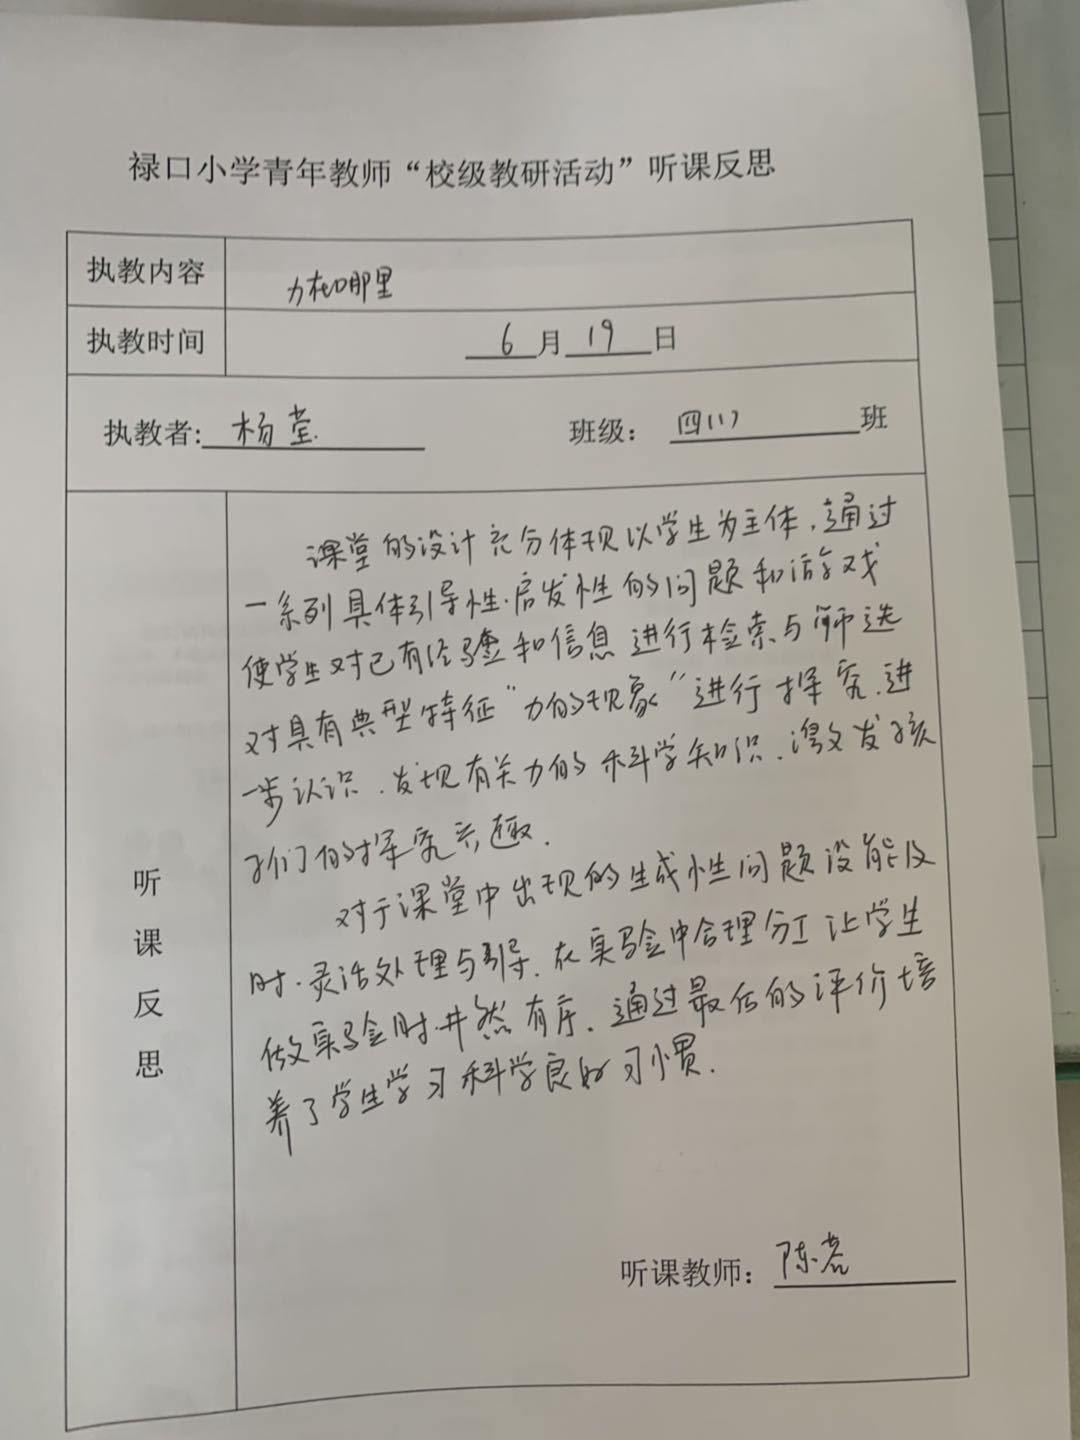 禄口小学青年教师“校级教研活动”听课反思
执教内容
力在哪里
执教时间
6月19日
执教者:杨莹.
班级：四(1)班
听课反思
课堂的设计充分体现以学生为主体，通过
一系列具体引导性.启发性的问题和游戏
使学生对已有经验和信息进行检索与筛选
对具有典型特征“力的现象”进行探究.进
一步认识.发现有关力的科学知识.激发孩
子们的探究兴趣.
对于课堂中出现的生成性问题没能及
时.灵活处理与引导.在实验中合理分工让学生
做实验时井然有序.通过最后的评价培
养了学生学习科学良好习惯.
听课教师：陈